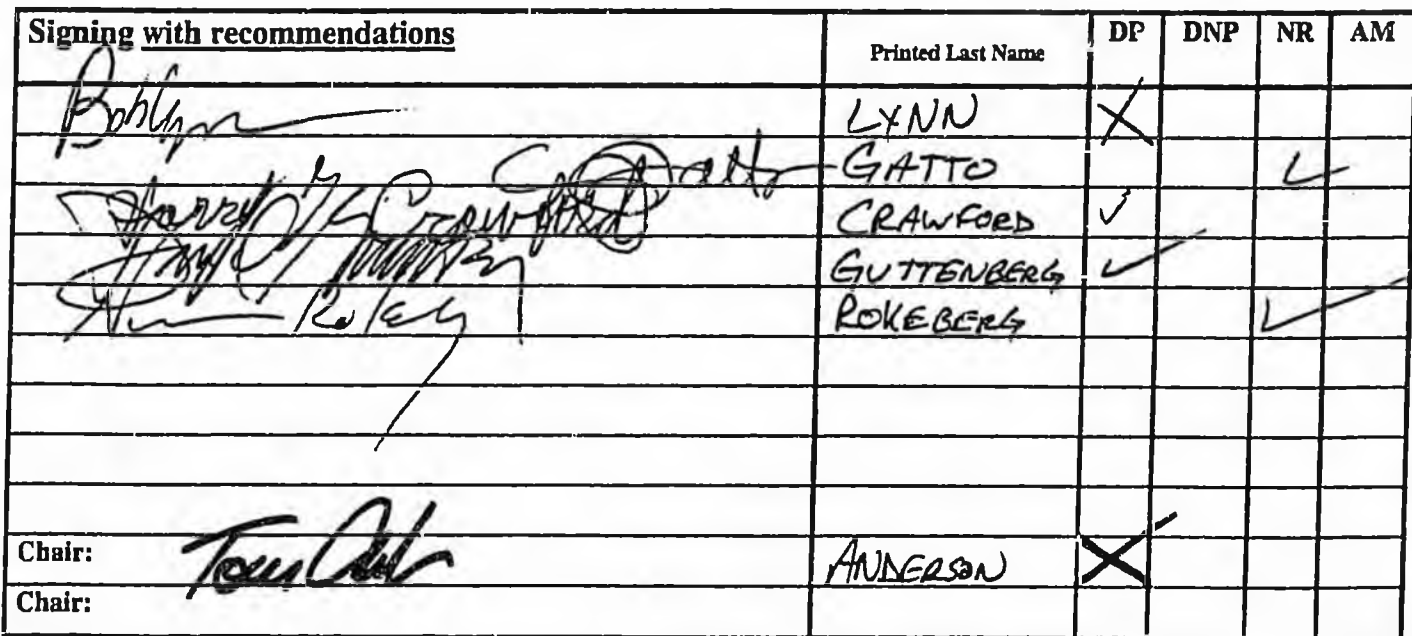 Signing with recommendations Printed Last Name DP DNP NR AM
Bob Lynn LYNN X
Gatto GATTO ✓
Harry Crawford CRAWFORD ✓
GUTTENBERG ✓
ROKEBERG ✓
Chair: Tom ANDERSON X
Chair: